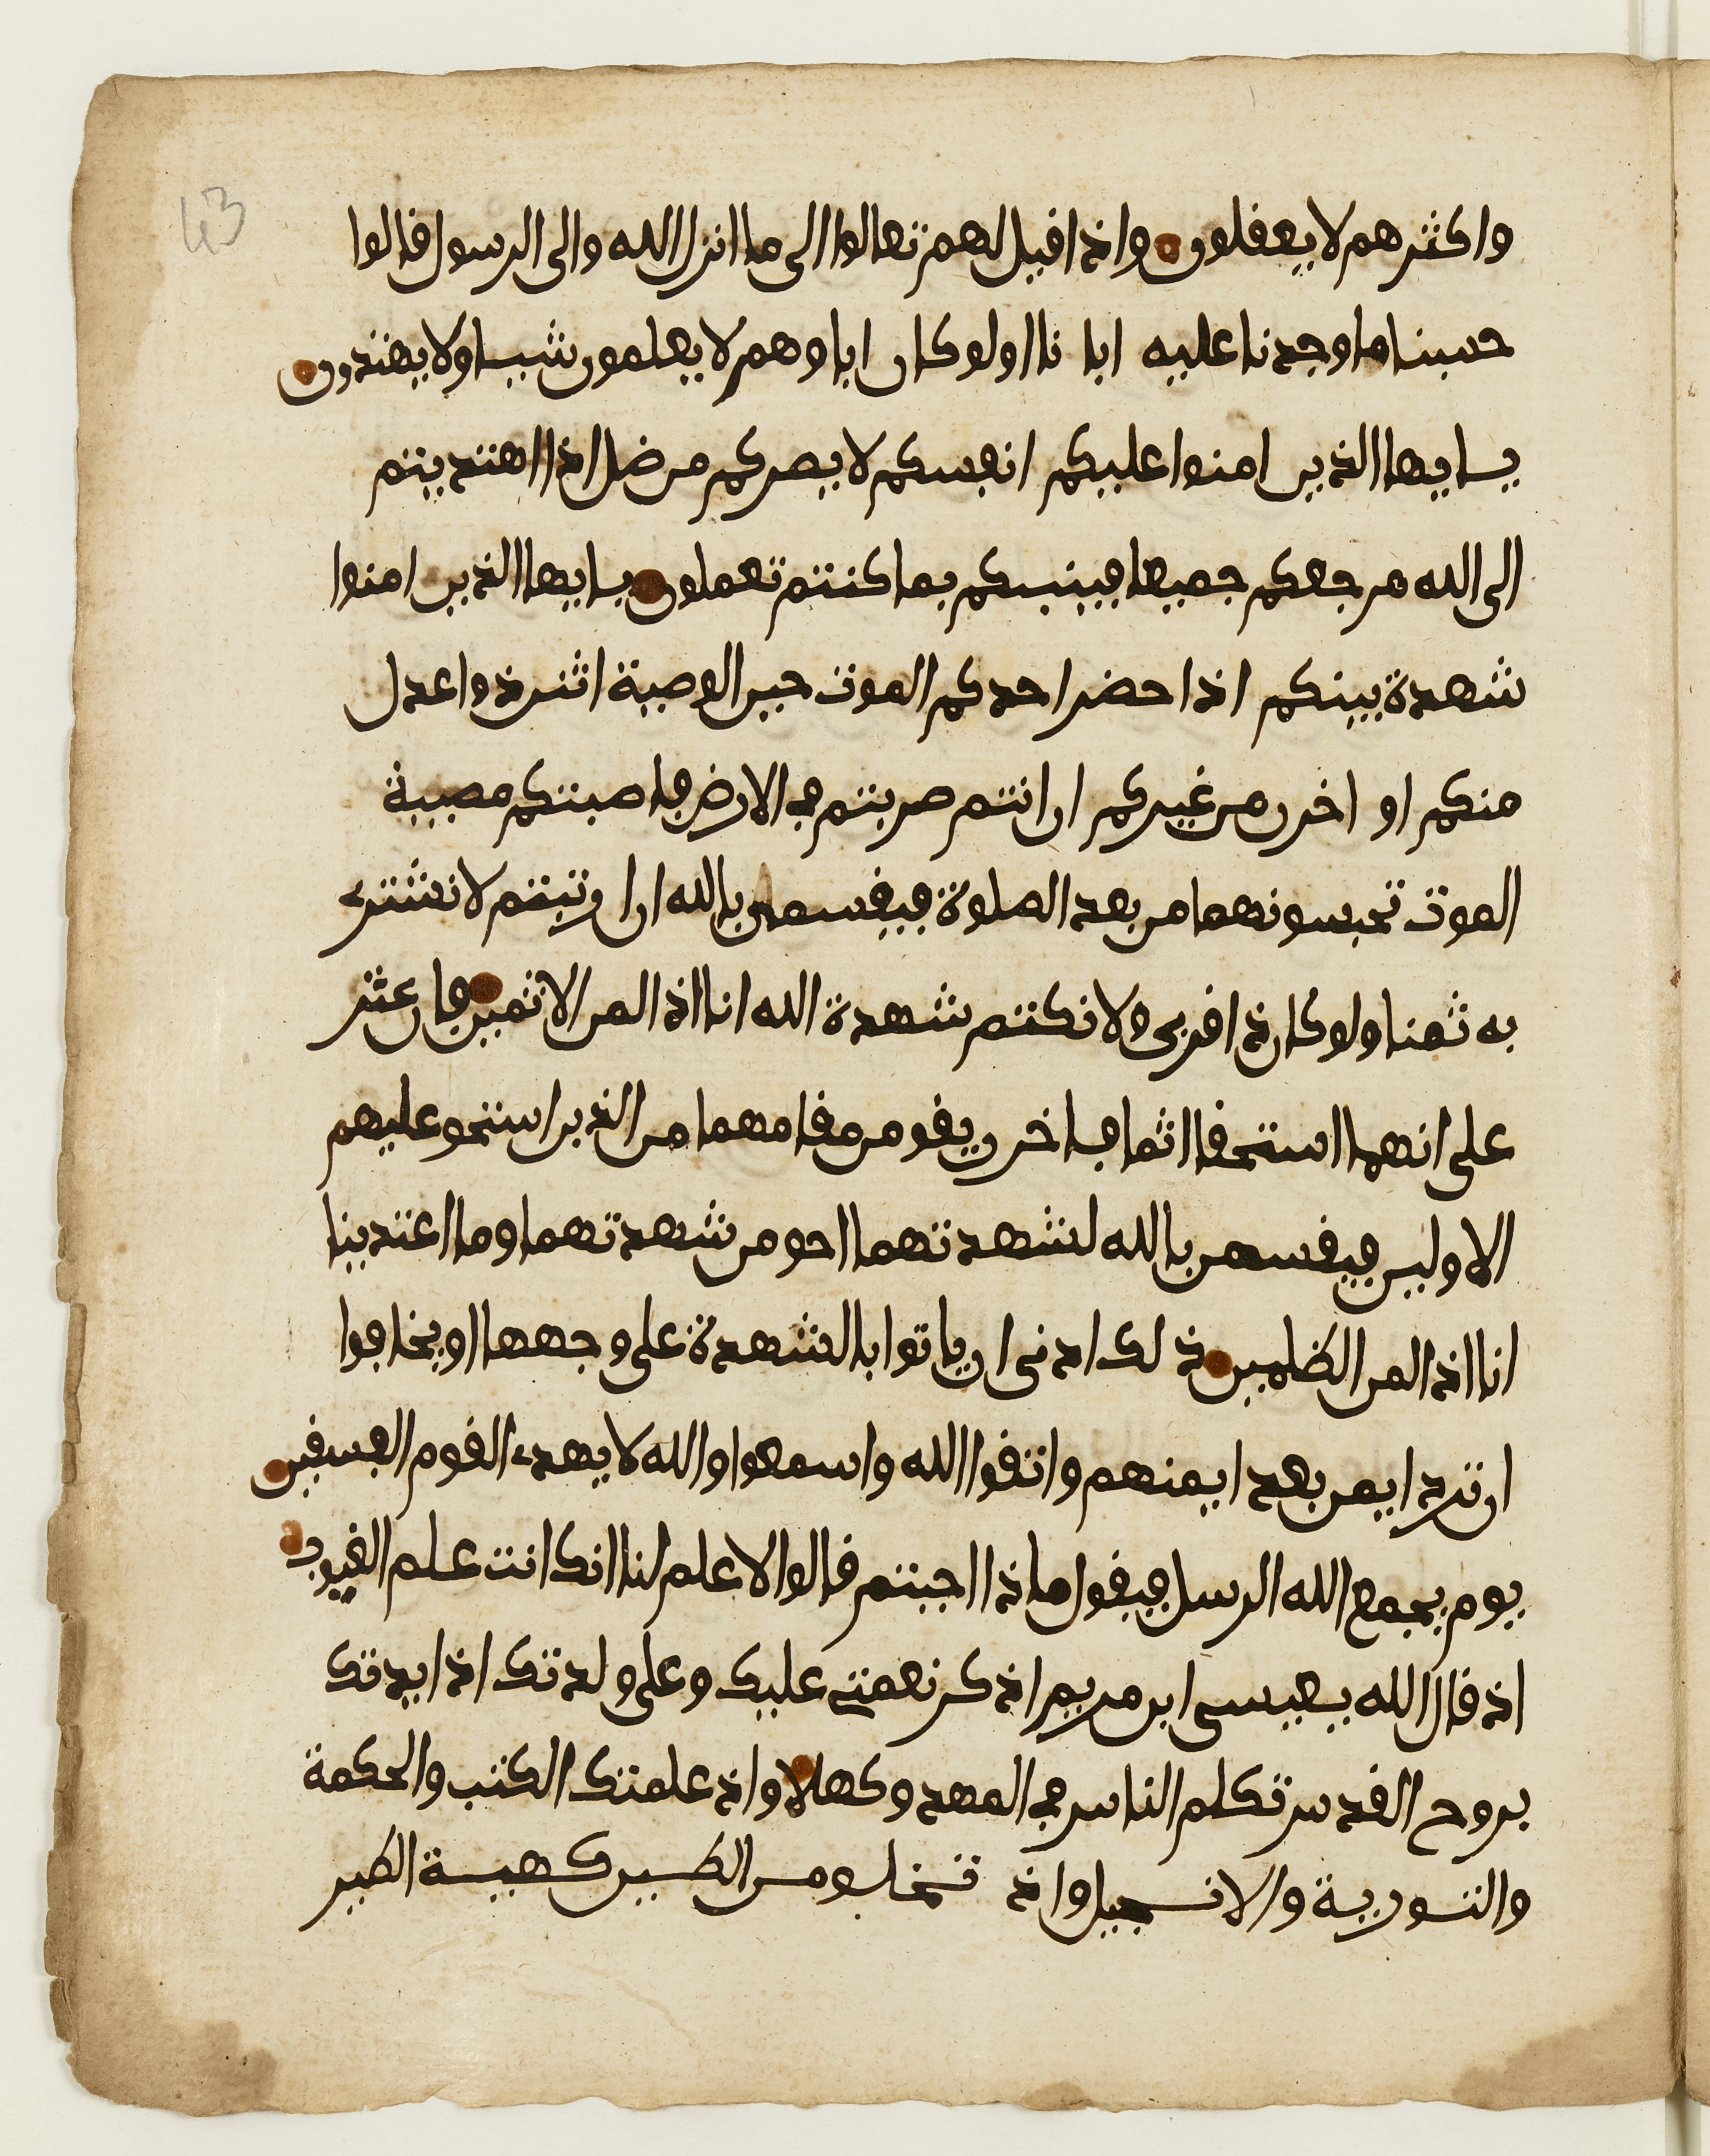 43
واكثرهم لا يعقلون واذا قيل لهم تعالوا الى ما انزل الله والى الرسول قالوا
حسبنا ما وجدنا عليه ابا نا اولو كان اباوهم لا يعلمون شيا ولا يهتدون
يايها الذين امنوا عليكم انفسكم لا يضركم من ضل اذا اهتديتم
الى الله مرجعكم جميعا فينبيكم بما كنتم تعملون يايها الذين امنوا
شهدة بينكم اذا حضر احدكم الموت حين الوصية اثنن ذوا عدل
منكم او اخرن من غيركم ان انتم ضربتم في الارض فاصبتكم مصيبة
الموت تحبسونهما من بعد الصلوة فيقسمن بالله ان ارتبتم لا نشتري
به ثمنا ولو كان ذا قربى ولا نكتم شهدة الله انا اذا لمن الاثمين فان عثر
على انهما استحقا اثما فاخرن يقومن مقامهما من الذين استحق عليهم
الاولين فيقسمن بالله لشهدتهما احق من شهدتهما وما اعتدينا
انا اذا لمن الظلمين ذلك ادنى ان ياتوا بالشهدة على وجهها او يخافوا
ان ترد ايمن بعد ايمنهم واتقوا الله واسمعوا والله لا يهدي القوم الفسقين
يوم يجمع الله الرسل فيقول ماذا اجبتم قالوا لا علم لنا انك انت علم الغيوب
اذ قال الله يعيسى ابن مريم اذكر نعمتي عليك وعلى ولدتك اذ ايدتك
بروح القدس تكلم الناس في المهد وكهلا واذ علمتك الكتب والحكمة
والتورية والانجيل واذ تخلق من الطين كهية الطير